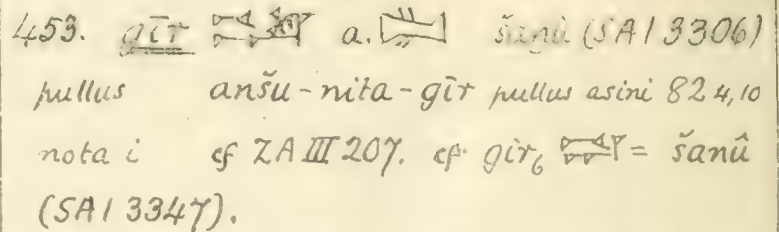 453. gīr a. šanû (SAI 3306)
pullus anšu-nita-gīr pullus asini 82 4,10
nota i cf ZA III 207. cf. gìr₆ = šanû
(SAI 3347).